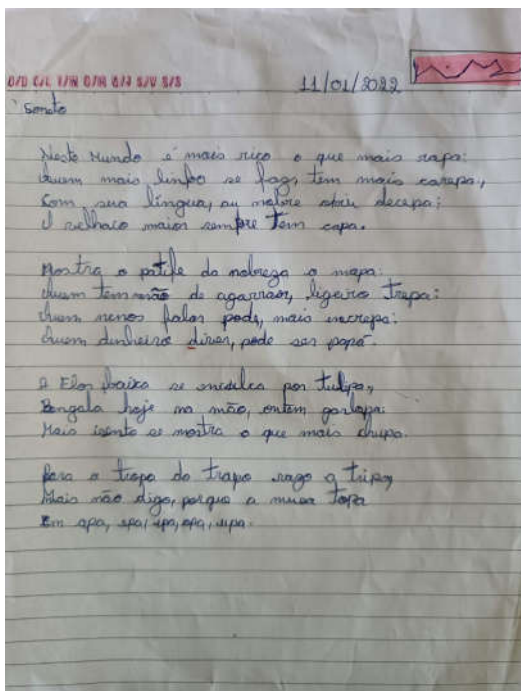 D/D C/L T/M Q/M Q/J S/V S/S
11/01/2022
Soneto
Neste Mundo é mais rico o que mais rapa:
Quem mais limpo se faz, tem mais carepa,
Com sua língua, ao nobre decepa:
O velhaco maior sempre tem capa.
Mostra o patife da nobreza o mapa:
Quem tem mão de agarrar, ligeiro trepa:
Quem menos falar pode, mais increpa:
Quem dinheiro, pode ser papa.
A Flor baixa se inculca por tulipa,
Bengala hoje na mão, ontem garlopa:
Mais isento se mostra o que mais chupa.
Para a tropa do trapo vazo a tripa,
Mais não digo, porque a musa topa
Em apa, epa, ipa, opa, upa.